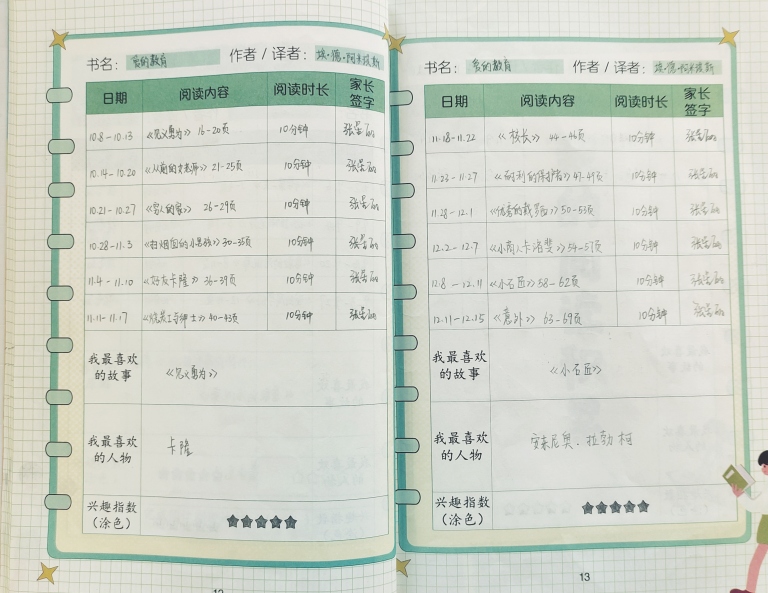 书名： 爱的教育 作者 / 译者： 埃·德·阿米琪斯
日期 阅读内容 阅读时长 家长签字
10.8-10.13 《见义勇为》 16-20页 10分钟
10.14-10.20 《从前的女老师》 21-25页 10分钟
10.21-10.27 《穷人的家》 26-29页 10分钟
10.28-11.3 《扫烟囱的小男孩》 30-35页 10分钟
11.4-11.10 《好友卡隆》 36-39页 10分钟
11.11-11.17 40-43页 10分钟
我最喜欢的故事 《见义勇为》
我最喜欢的人物 卡隆
兴趣指数（涂色）
书名： 爱的教育 作者 / 译者： 埃·德·阿米琪斯
日期 阅读内容 阅读时长 家长签字
11.18-11.22 《校长》 44-46页 10分钟
11.23-11.27 《耐利的保护者》 47-49页 10分钟
11.28-12.1 50-53页 10分钟
12.2-12.7 《小商人卡洛斐》 54-57页 10分钟
12.8-12.11 《小石匠》 58-62页 10分钟
12.11-12.15 《意外》 63-69页 10分钟
我最喜欢的故事 《小石匠》
我最喜欢的人物 安东尼奥·拉勃柯
兴趣指数（涂色）
13